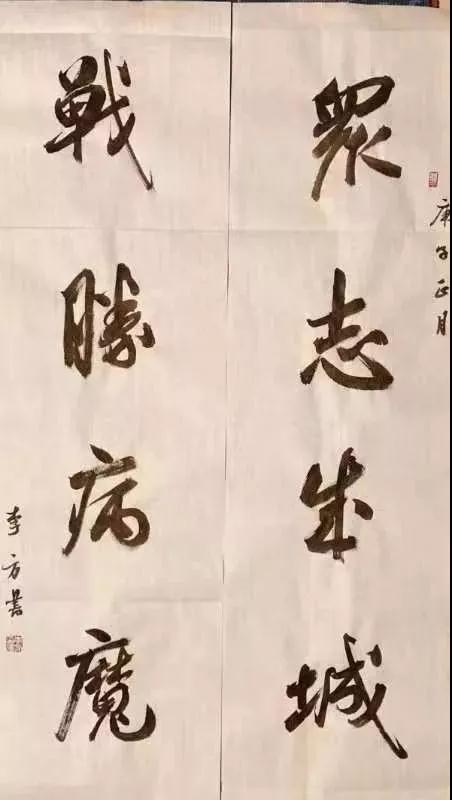 庚子正月
眾志成城
戰勝病魔
李方書